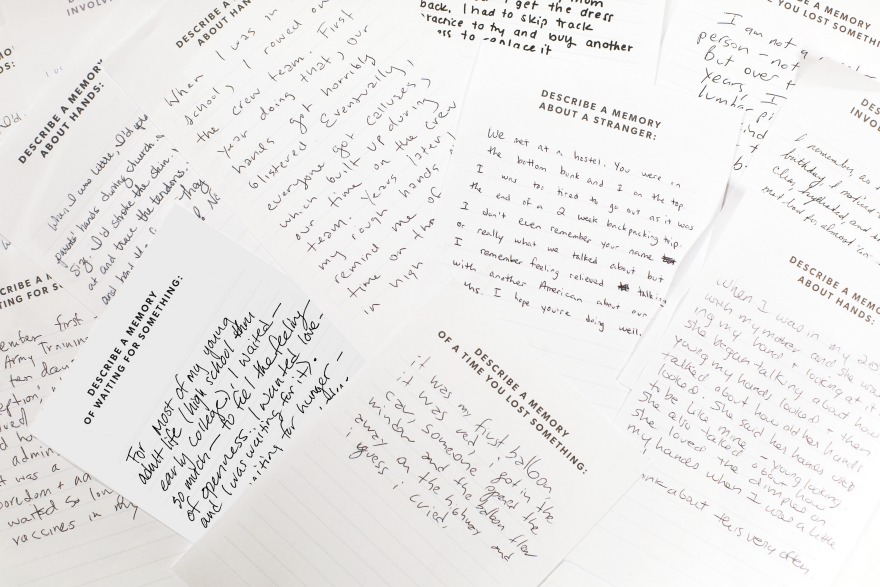 get the dress
back. I had to skip track
practice to try and buy another
to replace it
I am not a
person - not
but over
years, I
lumbar
DESCRIBE A MEMORY
ABOUT HANDS:
When I was little, I'd
parents' hands during church.
I'd stroke the skin.
at and trace the tendons.
and
they
DESCRIBE A MEM
ABOUT HAN
When I was in
school, I rowed on
the crew team. First
year doing that, our
hands got horribly
blistered. Eventually,
everyone got calluses,
which built up during
our time on the crew
team. Years later,
my rough hands
remind me of
time on the
in high
DESCRIBE A MEMORY
ABOUT A STRANGER:
We met at a hostel. You were in
the bottom bunk and I on the top
I was too tired to go out as it was
the end of a 2 week backpacking trip.
I don't even remember your name
or really what we talked about but
I remember feeling relieved talking
with another American about our
lives. I hope you're doing well.
DESCRIBE A
INVO
I remember
birthday. I
mad
DESCRIBE A MEMORY
ABOUT HANDS:
When I was in my 20s
with my mother and she was
ing my hand + looking at it.
she began talking about how
young my hands looked - then
talked about how old her hands
looked. She said her hands used
to be like mine - young looking.
She also talked about how
she loved the dimples on
my hands when I was a little
think about this very often
DESCRIBE A M
WAITING FOR S
first
Army Training
ten
admin
was a
boredom +
waited so long
vaccines in my
DESCRIBE A MEMORY
OF WAITING FOR SOMETHING:
For most of my young
adult life (high school thru
early college), I waited -
so much - to feel the feeling
of openness... I wanted love -
and (was waiting for it).
waiting for hunger -
DESCRIBE A MEMORY
OF A TIME YOU LOST SOMETHING:
it was my first balloon
it was red, i got in the
car, someone opened the
window and the balloon flew
away on the highway and
i guess i cried,